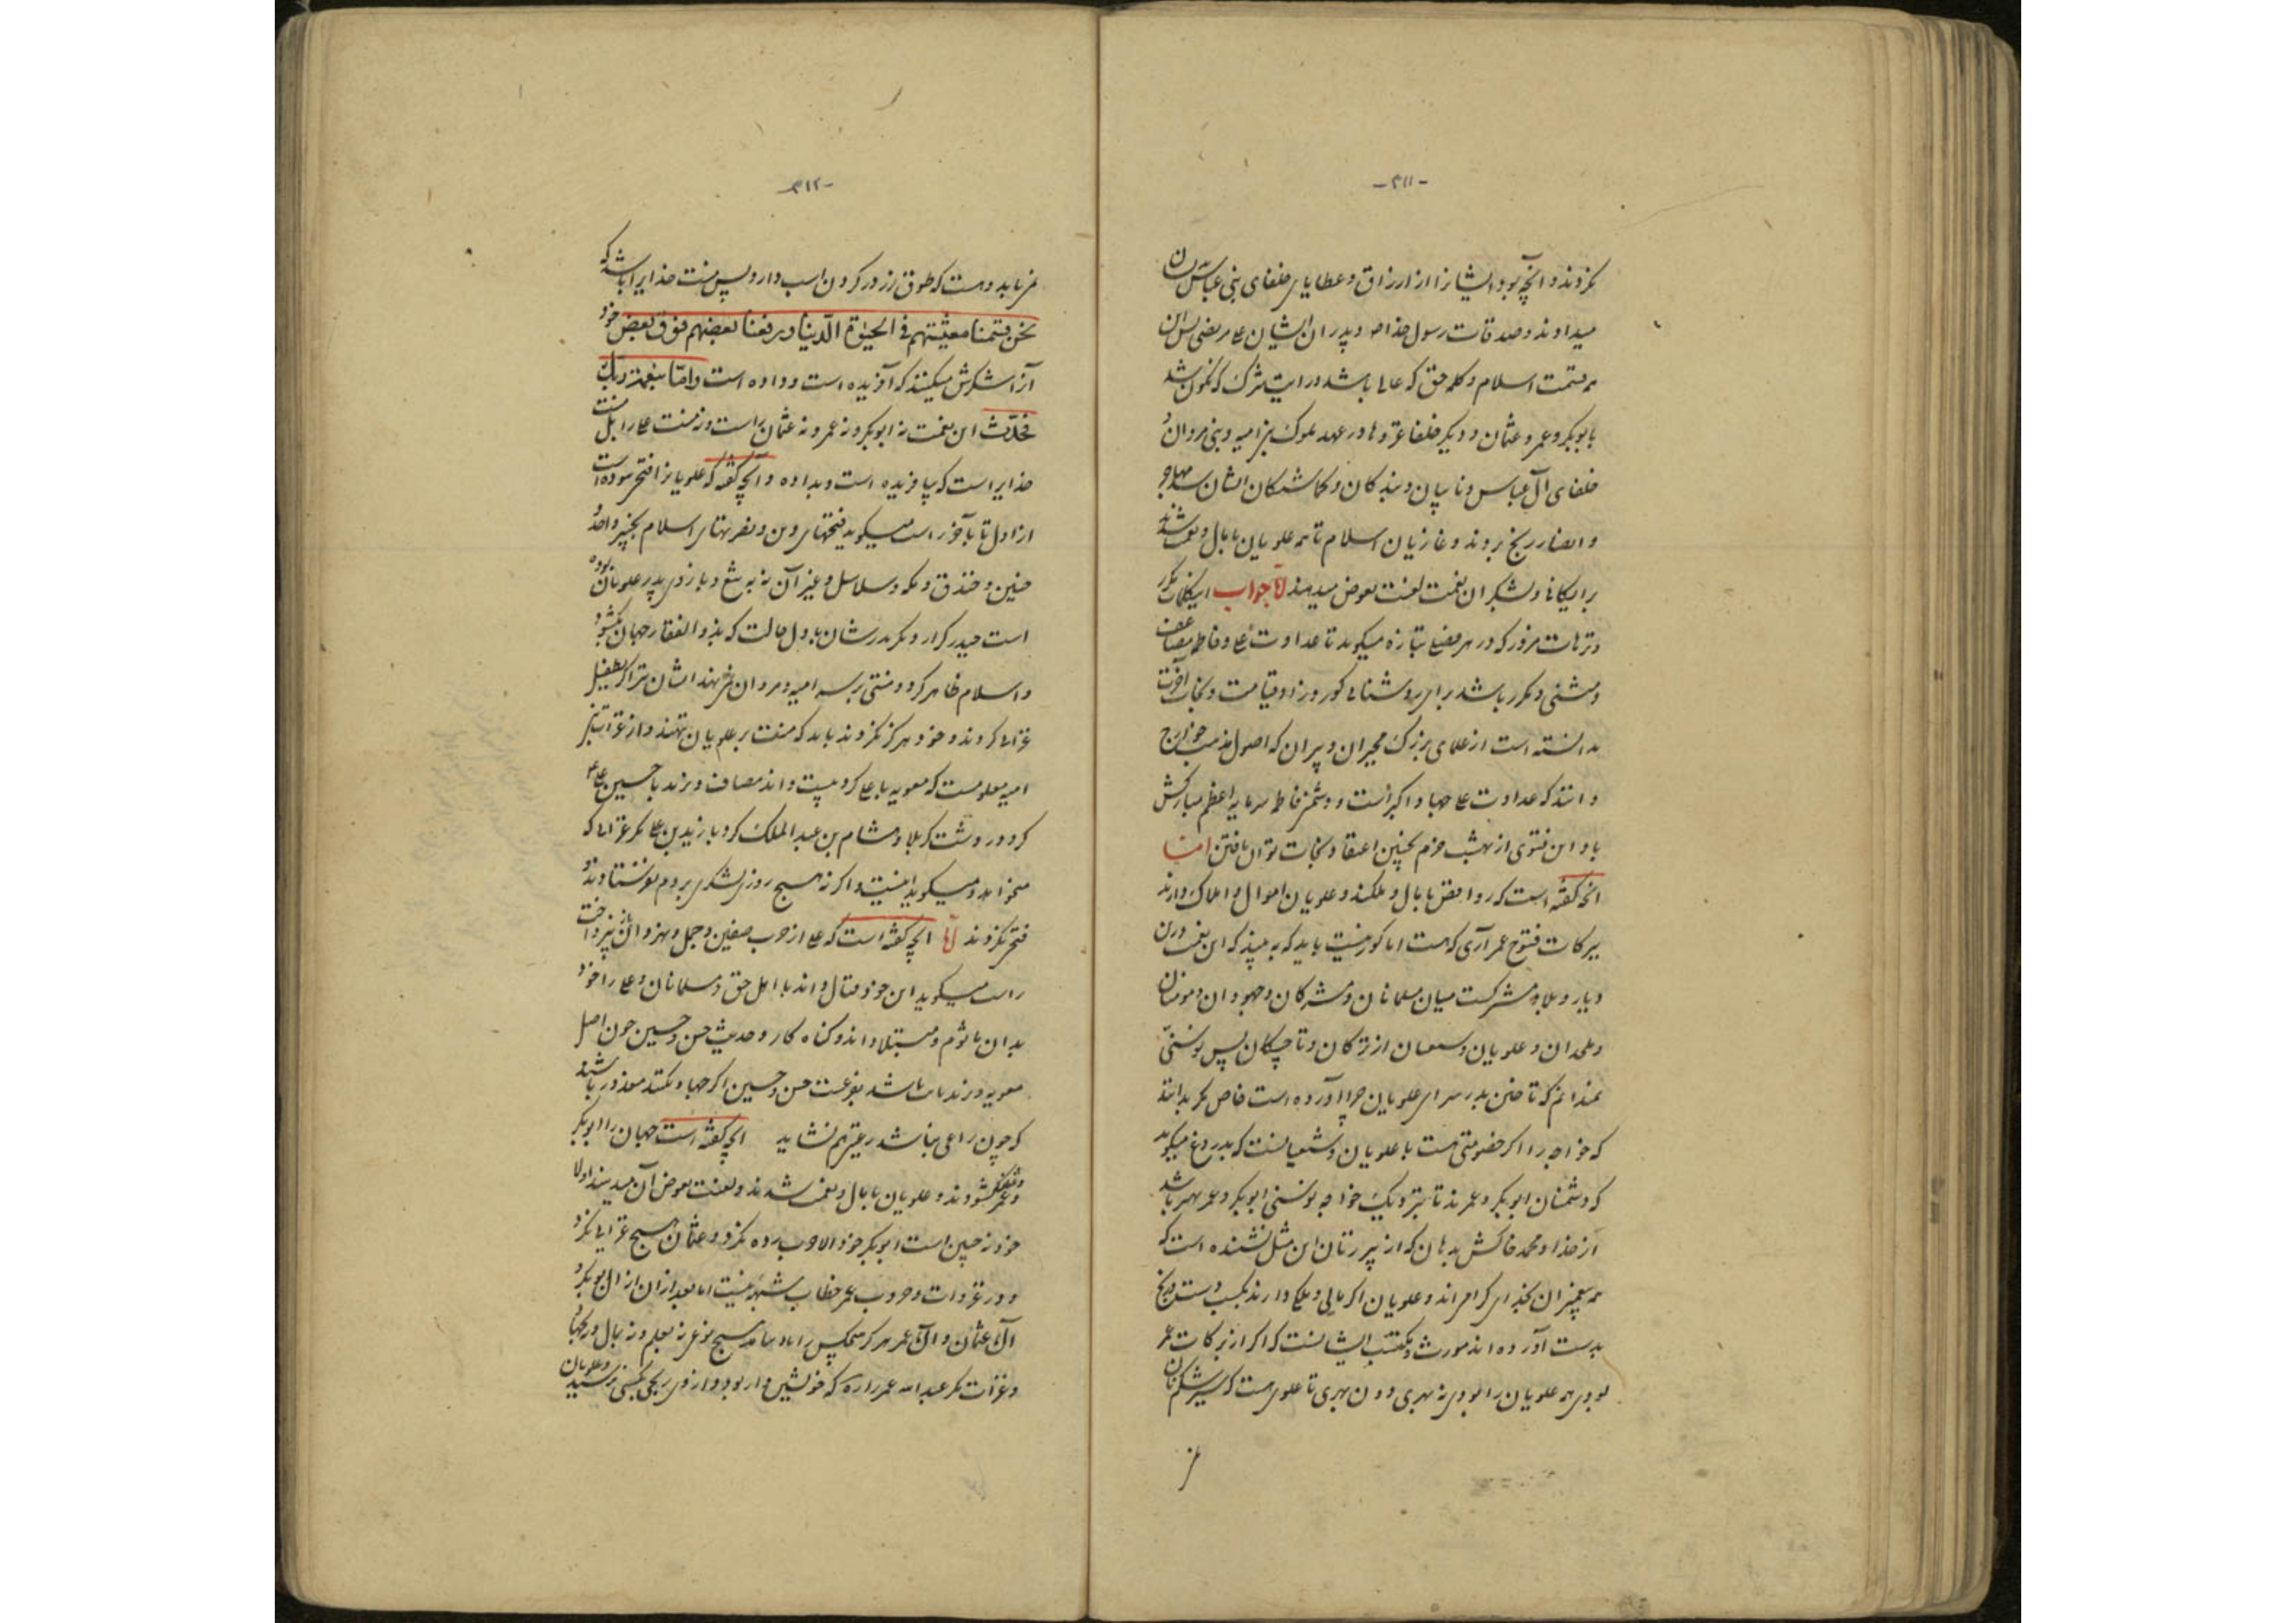 -۳۱۱-
نکردند و آنچه بود ایشانرا از ارزاق و عطایا خلفای بنی عباس
میدادند و صدقات رسول خدا و پدران ایشان علی مرتضی
همه قسمت اسلام و کلمه حق که عالی باشد و رایت شرک که نگون شد
بابوبکر و عمر و عثمان و دیگر خلفا و در عهد ملوک بنی امیه و بنی مروان
خلفای آل عباس و نایبان و بندگان و گماشتگان ایشان
و انصار رنج بردند و غازیان اسلام تا همه علویان با مال و نعمت شدند
برایگان و بشکر آن نعمت لعنت بعوض میدهند اما جواب این کلمات مکرر
و ترهات مزور که در هر فصلی بتازه میگوید تا عداوت علی و فاطمه مضاعف
و مثنی و مکرر باشد برای روشنائی گور و زاد قیامت و نجات آخرت
بدانسته است از علمای بزرگ مجبران و پیران که اصول مذهب خوارج
دانند که عداوت علی جهاد اکبر است و دشمنی فاطمه سرمایه اعظم مبارکش
باد این فتوی از بهشت خرم بچنین اعتقاد نجات توان یافتن اما
آنچه گفته است که روافض با مال و ملکند و علویان اموال و املاک دارند
ببرکات فتوح عمر آری که هست اما کور نیست باید که به بیند که این نعمت درین
دیار و بلاد مشترکست میان مسلمانان و مشرکان و جهودان و مومنان
و ملحدان و علویان و شیعیان از ترکان و تاجیکان پس بوسنی
نمیدانم که تاختن بدر سرای علویان چرا آورده است خاص مگر بدانند
که خواجه را اگر خصومتی هست با علویان و شیعیانست که بدروغ میگوید
که دشمنان ابوبکر و عمرند تا بنزدیک خواجه بوسنی ابوبکر و عمر بهتر باشد
از خدا و محمد خاکش بدهان که از پیرزنان این مثل نشنیده است که
همه پیغمبران بخدای گرامی اند و علویان اگر مالی و ملکی دارند بکسب دست و رنج
بدست آورده اند موروث و مکتسب ایشانست که اگر از برکات عمر
بودی همه علویان را بودی نه بهری دون بهری تا علوی هست که سیر شکم نان
نمی
-۳۱۲-
نمی یابد و هست که طوق زر در گردن اسب دارد پس منت خدایرا باشد که
نحن قسمنا معیشتهم فی الحیوة الدنیا و رفعنا بعضهم فوق بعض خود
آنرا شکرش میکنند که آفریده است و داده است و اما بنعمة ربک
فحدث این نعمت نه ابوبکر و نه عمر و نه عثمان راست و نه منت علی را بل منت
خدایراست که بیافریده است و بداده و آنچه گفته که علویانرا فتحی نبوده است
از اول تا بآخر راست میگوید فتحهای دین و نصرتهای اسلام بخیبر و احد
حنین و خندق و مکه و سلاسل و غیر آن نه به تیغ و بازوی پدر علویان بوده
است حیدر کرار و مگر پدرشان بود آن حالت که بذوالفقار جهان بگشود
و اسلام ظاهر کرد و منتی بر سر امیه و مروان نمی نهند ایشان
غزائی کردند و خود هرگز نکردند باید که منت بر علویان ننهند و از غزات بنی
امیه معلومست که معویه با علی کرد بیست و اند مصاف و یزید با حسین علی
کرد در دشت کربلا و هشام بن عبدالملک کرد با زید بن علی مگر غزائی که
میخواهد و میگوید اینست و اگر نه هیچ روزی لشکری بروم نفرستادند و
فتح نکردند اما آنچه گفته است که علی از حرب صفین و جمل و نهروان
راست میگوید این خود قتال داند با اهل حق و مسلمانان و علی را خود
بدان ماثوم و مبتلا داند و گناه کار و حدیث حسن و حسین چون اصل
معویه و یزید باشد بفرعیت حسن و حسین اگر جهاد نکنند معذور باشند
که چون راعی نباشد رعیتی هم نشاید آنچه گفته است جهان را ابوبکر
و عمر بگشودند و علویان با مال و نعمت شدند و لعنت بعوض آن میدهند اولا
خود نه چنین است ابوبکر خود الا حرب رده نکرد و عثمان هیچ غزائی نکرد
و در غزوات و حروب عمر خطاب شبهه نیست اما بعد از آن از آل بوبکر و
آل عثمان و آل عمر هرگز هیچکس را
و غزات مگر عبدالله عمر را